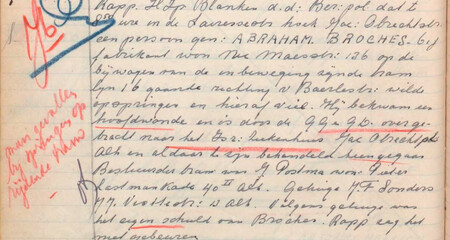 Rapp. H. Insp Blanken d.d: Ber: gol dat te
ure in de Lairessestr hoek Jac: Obrechtstr:
een persoon gen: ABRAHAM. BROCHES. 61 j
fabrikant won Nic Maesstr: 126 op de
bijwagen van de in beweging zijnde tram
lijn 16 gaande richting v Baerlestr: wilde
opspringen en hieraf viel. Hij bekwam een
hoofdwonde en is door de GG en GD. overge-
bracht naar het Isr: ziekenhuis Jac Obrechtstr
Alb en aldaar te zijn behandeld heengegaan
Bestuurder tram was J. Postma won: Pieter
Lastmankade 40 II Alb. Getuige J. F. Sonders
J. J. Viottastr: Alb. Volgens getuige was
het eigen schuld van Broches. Rapp zag het
niet gebeuren
man gevallen
bij opspringen op
rijdende tram